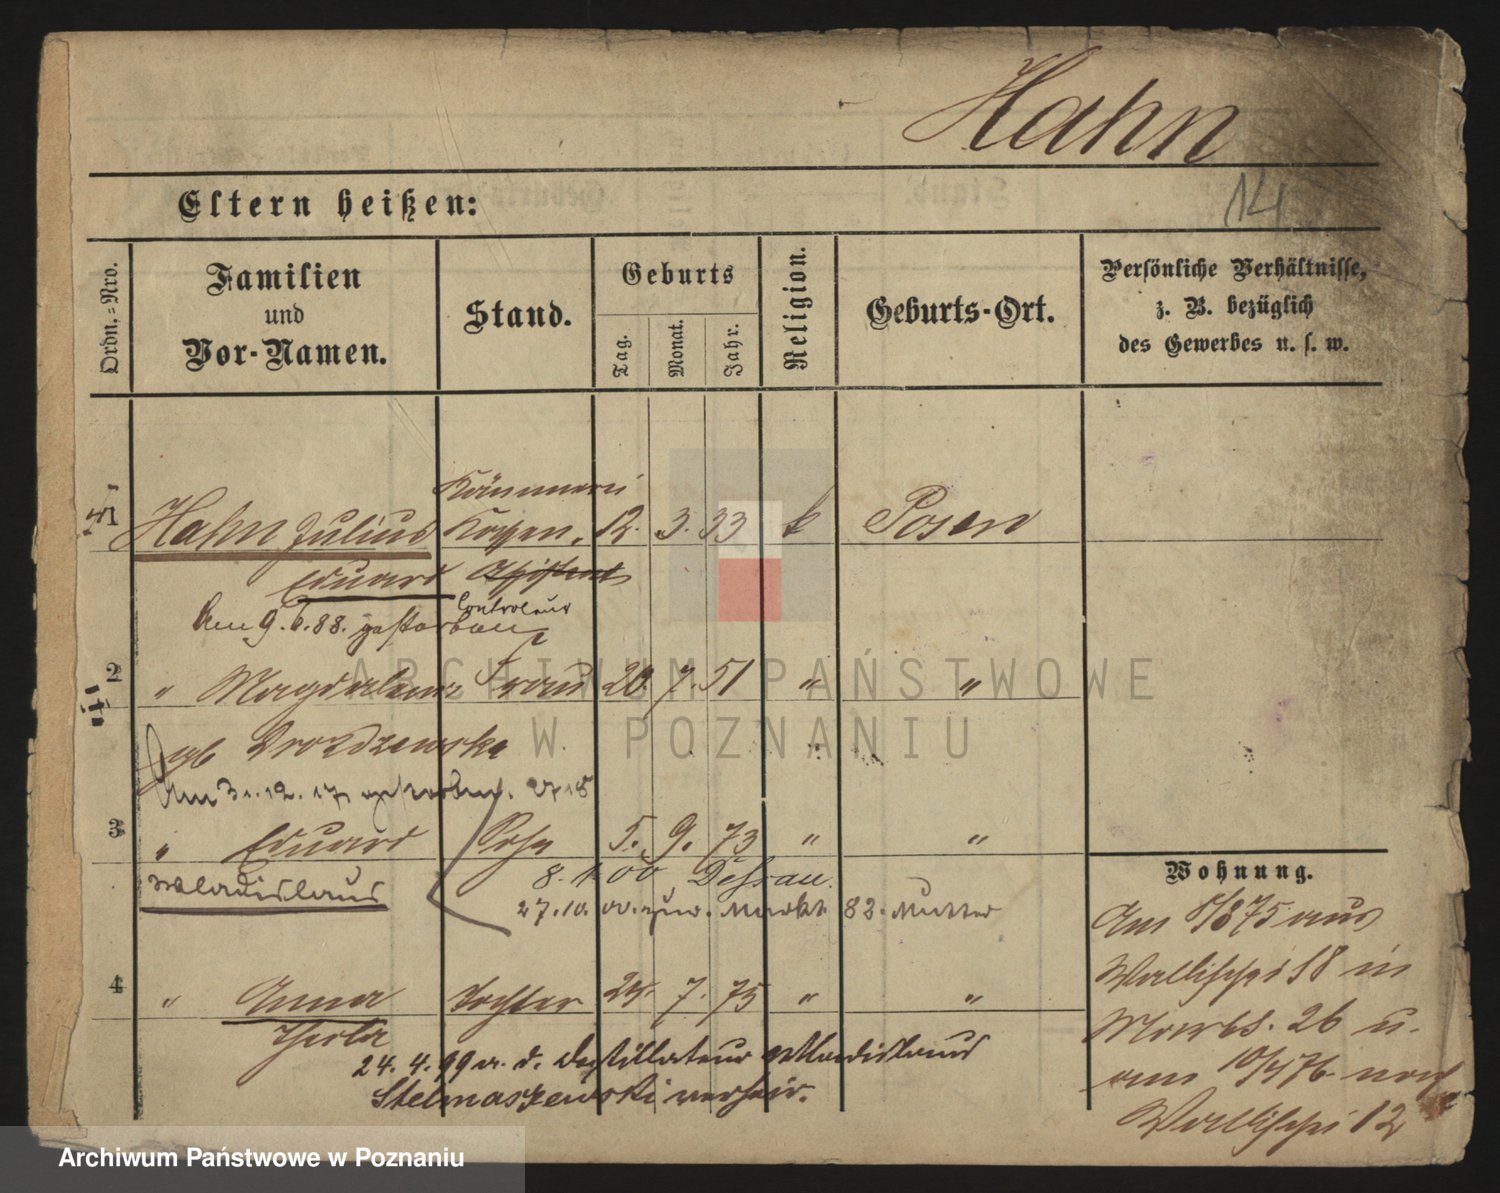 Hahn
14
Eltern heißen:
Ordn.=Nro.
Familien
und
Vor-Namen.
Stand.
Geburts
Tag.
Monat.
Jahr.
Religion.
Geburts-Ort.
Persönliche Verhältnisse,
z. B. bezüglich
des Gewerbes u. s. w.
Kämmerei
1 Hahn Julius Kassen, 12. 3. 33 k Posen
Eduard Assistent
Controleur
Am 9.6.88. gestorben
2 " Magdalena Frau 20. 7. 51 " "
geb Drozdzewska
Am 31.12.17 gestorben.
3 " Eduard Sohn 5. 9. 73 " "
Wladislaus
8. 00 Dessau.
27.10.00. zur. Markt 82. Mutter
4 " Anna Tochter 24. 7. 75 " "
Thecla
24. 4. 99 a. d. Destillateur Wladislaus
Stelmaszewski verheir.
Wohnung.
Am 1875 aus
Wallischei 18 in
26 u.
am 10/4 76 nach
Wallischei 12
ARCHIWUM PAŃSTWOWE
W POZNANIU
Archiwum Państwowe w Poznaniu